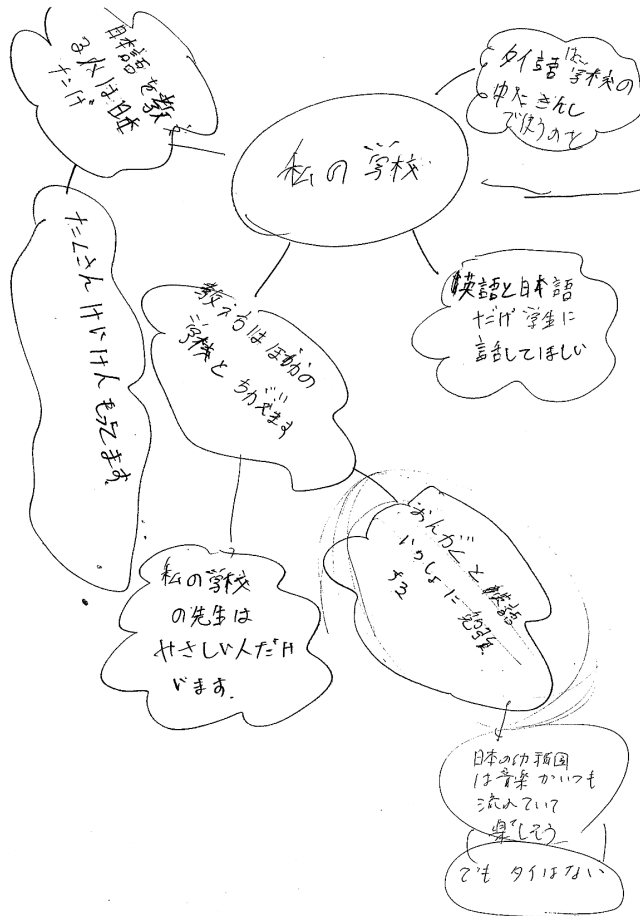 私の学校
日本語を教え
る人は日本
だけ
たくさん けいけんもってます。
タイ語は、学校の
中に きんし
で使うのを
英語と日本語
だけ 学生に
話してほしい
教え方はほかの
学校と ちがいます
私の学校
の先生は
やさしい人だけ
います。
おんがくと 英語
いっしょに 勉強
する
日本の幼稚園
は音楽がいつも
流れていて
楽しそう
でも タイはない